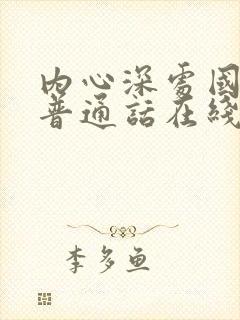 内心深处国
普通話在綫
李多鱼